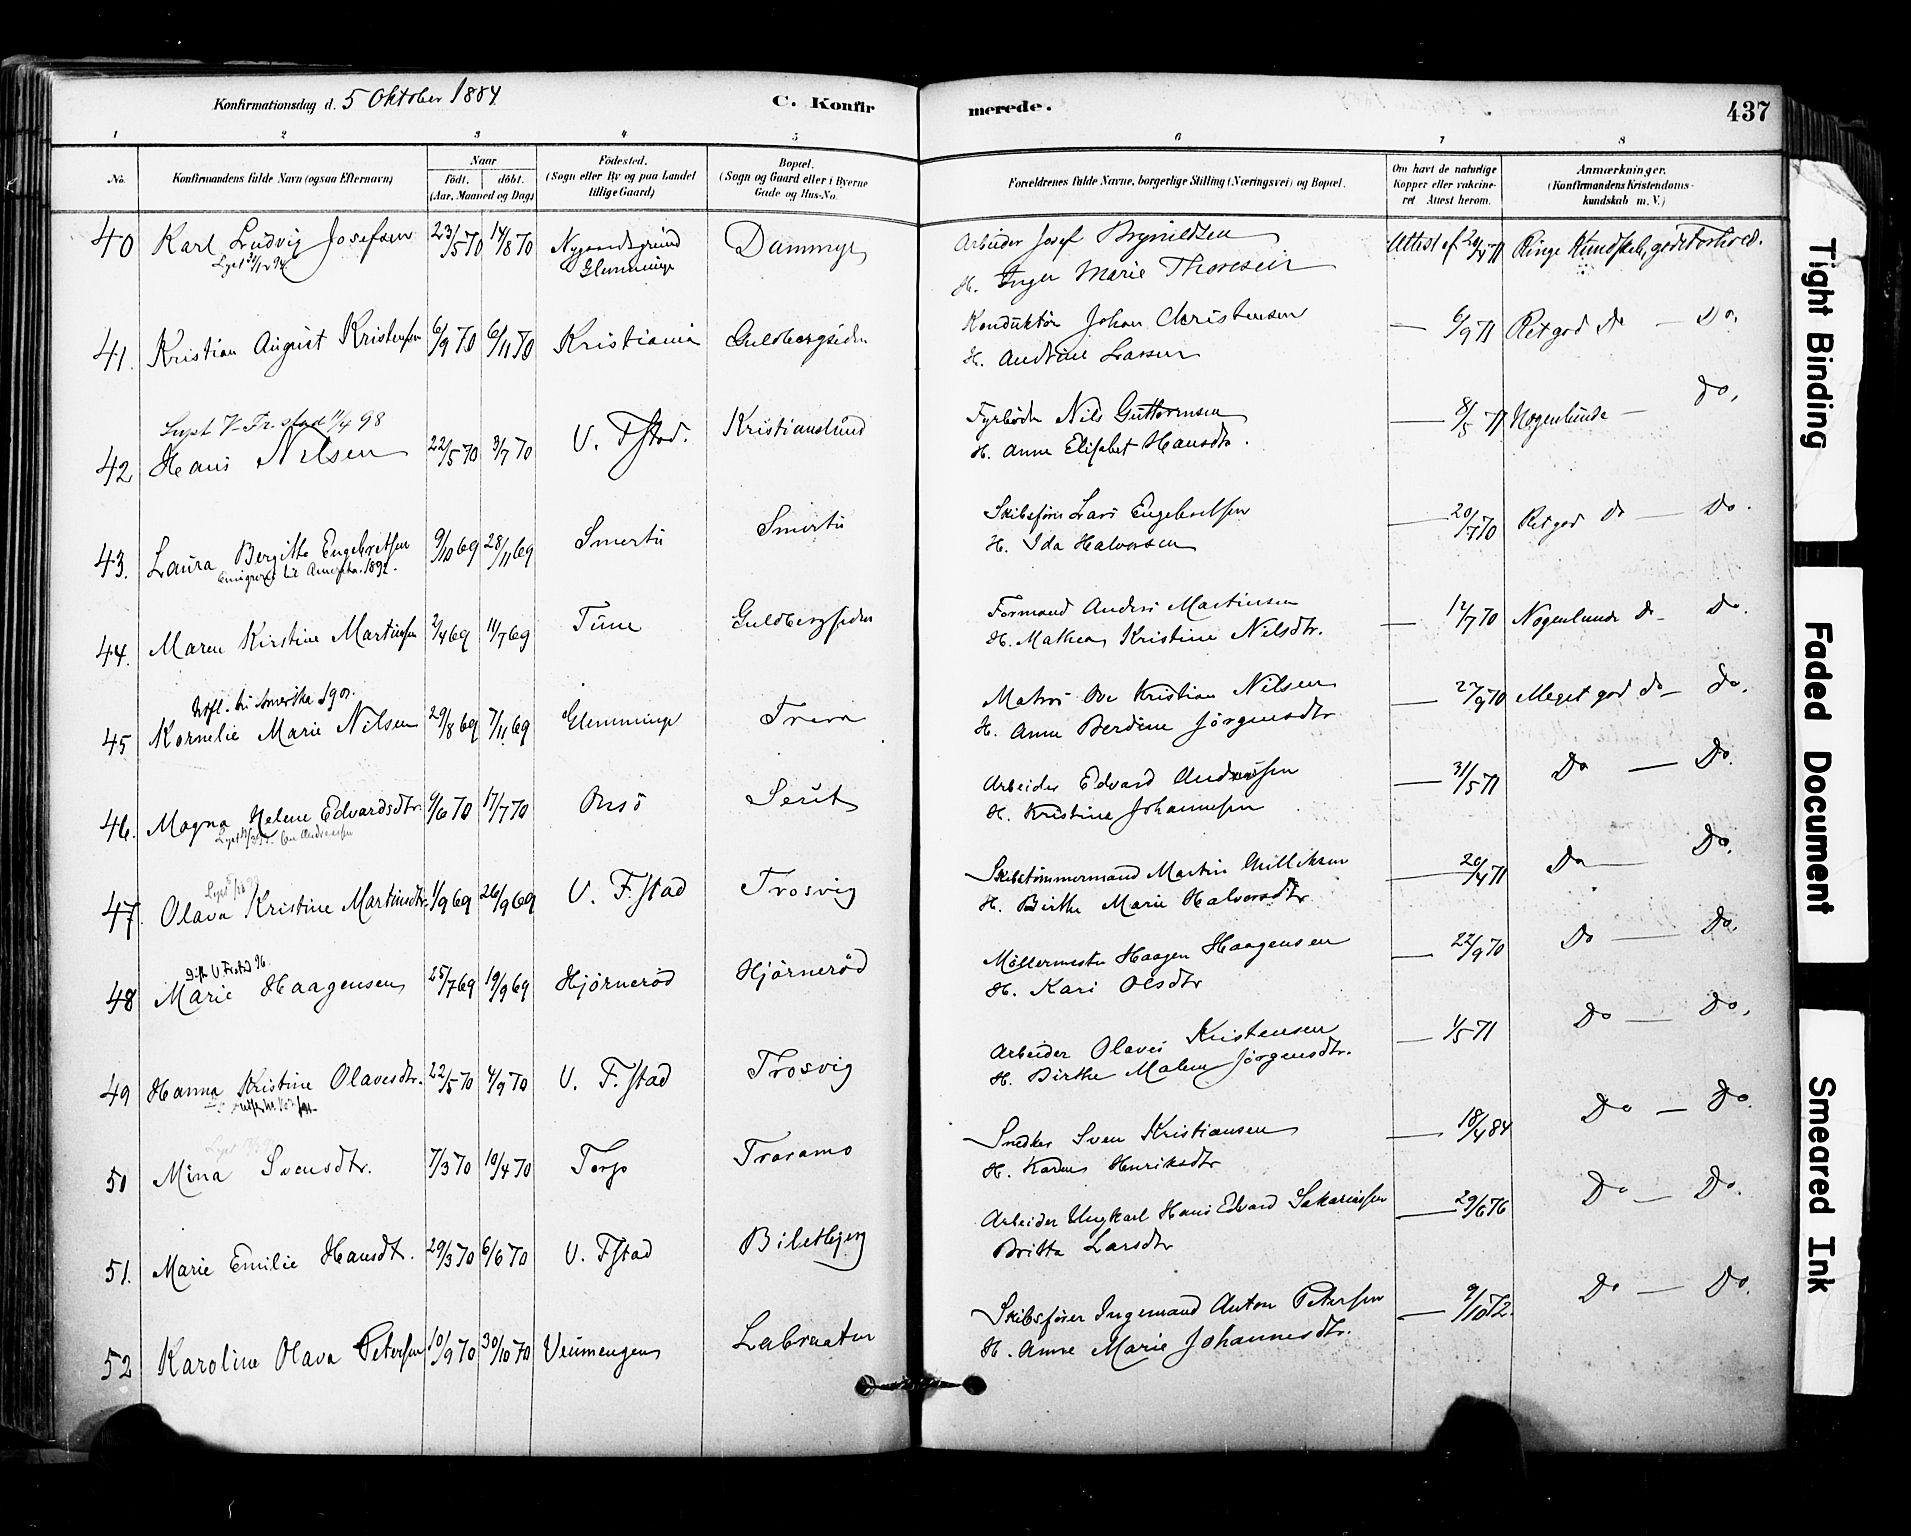 Konfirmationsdag d. 5 Oktober 1884
C. Konfirmerede.
437
1 2 3 4 5 6 7 8
No.
Konfirmandens fulde Navn (ogsaa Efternavn)
Naar
födt. döbt.
(Aar, Maaned og Dag)
Födested.
(Sogn eller By og paa Landet
tillige Gaard)
Bopæl.
(Sogn og Gaard eller i Byerne
Gade og Hus-No.
Forældrenes fulde Navne, borgerlige Stilling (Næringsvei) og Bopæl.
Om havt de naturlige
Kopper eller vakcine-
ret Attest herom.
Anmærkninger.
(Konfirmandens Kristendoms-
kundskab m. V.)
40 Karl Ludvig Josefsen 23/5 70 14/8 70 Nygaardsgrund Dammyr Arbeider Josef Brynildsen Attest af 20/4 71 Ringe Kundskab, gode Forhold.
Glemminge H. Inger Marie Thoresen
41. Kristian August Kristensen 6/9 70 6/11 70 Kristiania Guldbergsiden Konduktör Johan Christensen — 6/9 71 Ret god Do — Do.
H. Andrine Larsen
V. Fr.stad 11/4 98
42 Hans Nilsen 22/5 70 3/7 70 V. Fstad. Kristianslund Fyrböder Nils Guttormsen — 8/5 71 Nogenlunde — Do,
H. Anne Elisabet Hansdtr.
43. Laura Bergitte Engebretsen 9/10 69 28/11 69 Smertu Smertu Skibsförer Lars Engebretsen — 20/7 70 Ret god Do — Do.
Emigreret til Amerika 1892. H. Ida Halvorsen
44. Maren Kirstine Martinsen 2/4 69 11/7 69 Tune Guldbergsiden Formand Anders Martinsen — 12/7 70 Nogenlunde Do — Do.
H. Mathea Kristine Nilsdtr.
Utfl. til Amerika
45 Kornelie Marie Nilsen 29/8 69 7/11 69 Glemminge Trara Matros Ove Kristian Nilsen — 27/9 70 Meget god do — do.
H. Anne Berdine Jörgensdtr
46. Magna Helene Edvardsdtr. 9/6 70 17/7 70 Onsö Seut Arbeider Edvard Andreassen — 31/5 71 Do — Do.
H. Kristine Johannesen
47. Olava Kristine Martinsdtr. 1/9 69 26/9 69 V. F.stad Trosvig Skibstömmermand Martin Gulliksen — 20/4 71 Do — Do.
H. Birthe Marie Halvorsdtr
48 Marie Haagensen 25/7 69 19/9 69 Hjørnerød Hjørnerød Möllermester Haagen Haagensen — 22/9 70 Do — Do.
H. Kari Olsdtr
49 Hanna Kristine Olavesdtr. 22/5 70 4/9 70 V. F.stad Trosvig Arbeider Olaves Kristensen — 1/5 71 Do — Do,
H. Birthe Malene Jörgensdtr.
50 Mina Svensdtr. 7/3 70 10/4 70 Torp Traramo Snedker Sven Kristiansen — 18/4 84 Do — Do.
H. Karen Henriksdtr
51. Marie Emilie Hansdtr. 29/3 70 6/6 70 V. Fstad Biletbjerg Arbeider Ungkarl Hans Edvard Sakariassen — 29/6 76 Do — Do.
Britta Larsdtr
52 Karoline Olava Petersen 10/9 70 30/10 70 Veumengen Labraaten Skibsförer Ingemand Anton Petersen — 9/10 72. Do — Do.
H. Anne Marie Johannesdtr.
Tight Binding
Faded Document
Smeared Ink